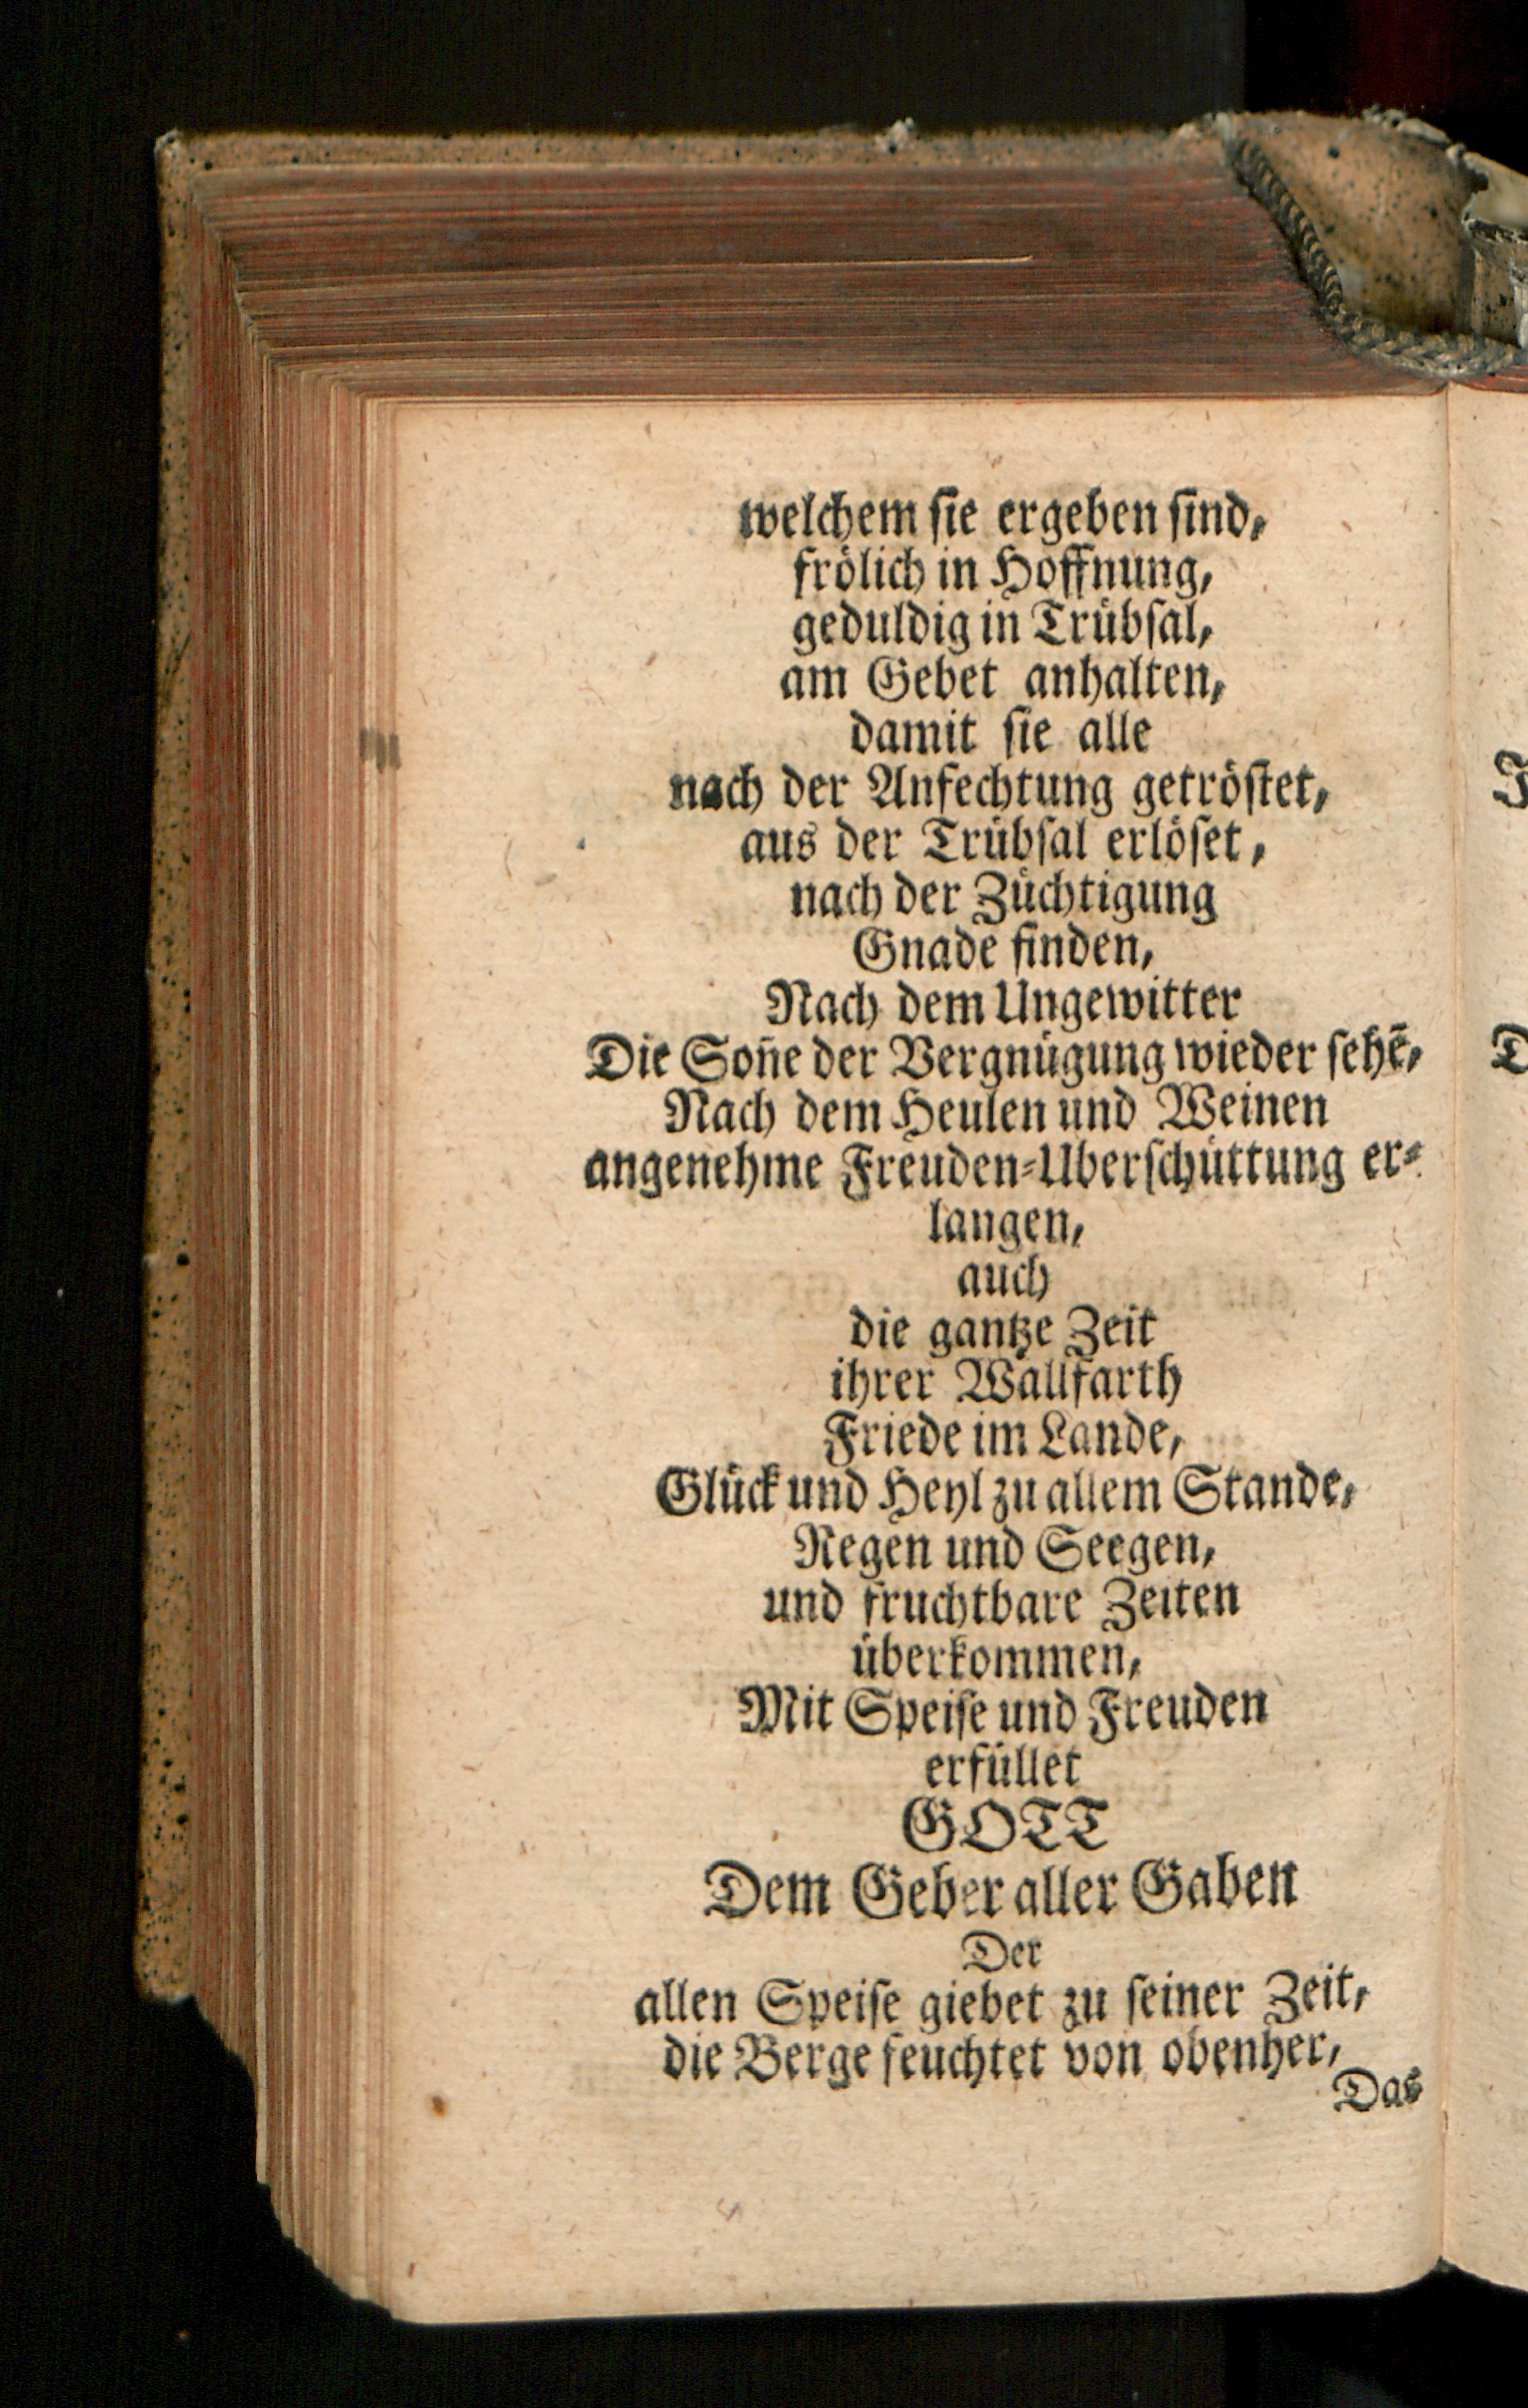 welchem sie ergeben sind,
frölich in Hoffnung,
geduldig in Trübsal,
am Gebet anhalten,
damit sie alle
nach der Anfechtung getröstet,
aus der Trübsal erlöset,
nach der Züchtigung
Gnade finden,
Nach dem Ungewitter
Die Soñe der Vergnügung wieder sehē,
Nach dem Heulen und Weinen
angenehme Freuden-Uberschüttung er-
langen,
auch
die gantze Zeit
ihrer Wallfarth
Friede im Lande,
Glück und Heyl zu allem Stande,
Regen und Seegen,
und fruchtbare Zeiten
überkommen,
Mit Speise und Freuden
erfüllet
GOTT
Dem Geber aller Gaben
Der
allen Speise giebet zu seiner Zeit,
die Berge feuchtet von obenher,
Das